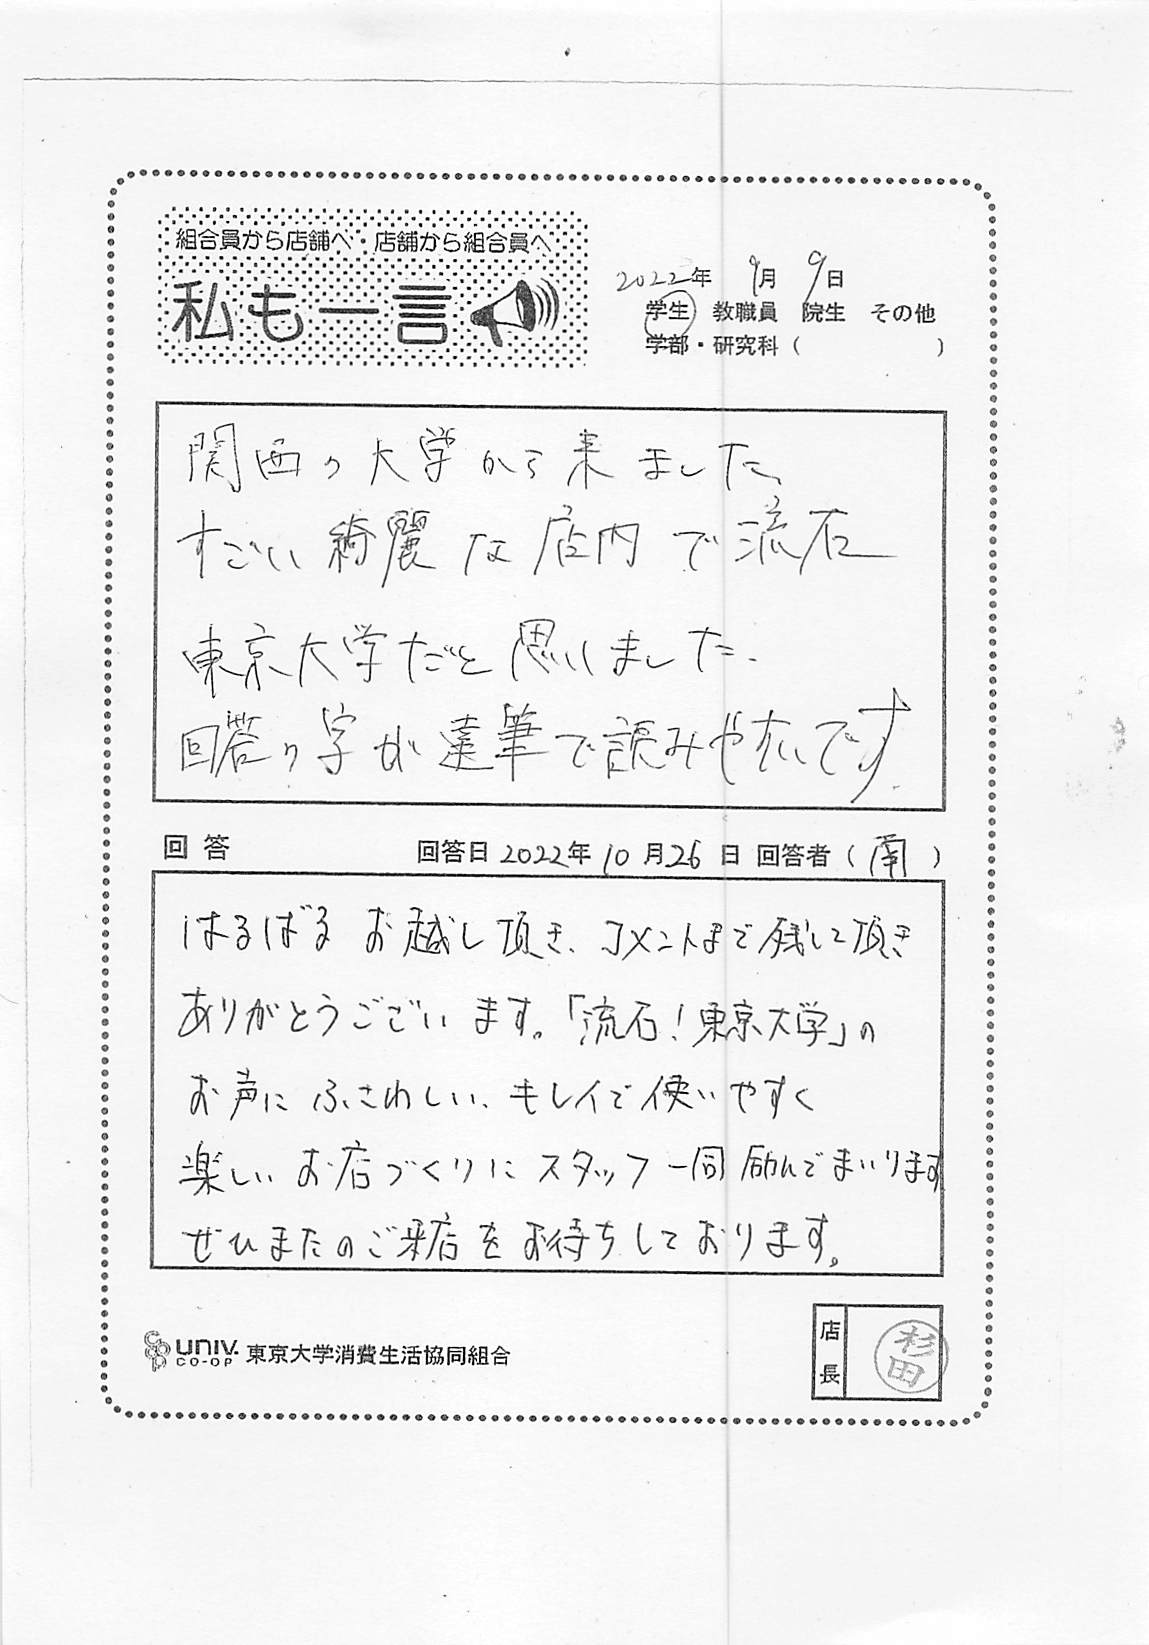 組合員から店舗へ・店舗から組合員へ
私も一言
2022年 9月 9日
学生 教職員 院生 その他
学部・研究科( )
関西の大学から来ました、
すごい綺麗な店内で流石
東京大学だと思いました、
回答の字が達筆で読みやすいです.
回答 回答日 2022年 10月26日 回答者(南)
はるばるお越し頂き、コメントまで残して頂き
ありがとうございます。「流石!東京大学」の
お声にふさわしい、キレイで使いやすく
楽しいお店づくりにスタッフ一同励んでまいります
ぜひまたのご来店をお待ちしております。
店長 杉田
UNIV. CO-OP 東京大学消費生活協同組合